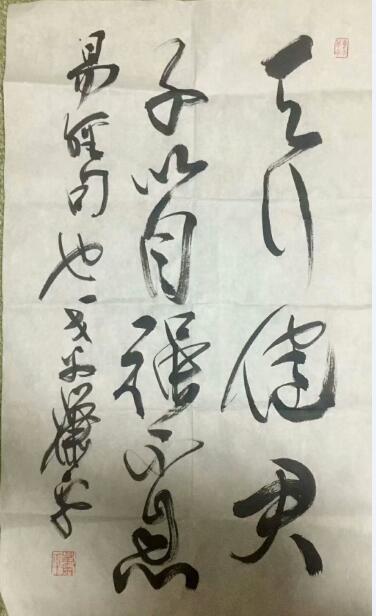 天行健君
子以自强不息
易经句也